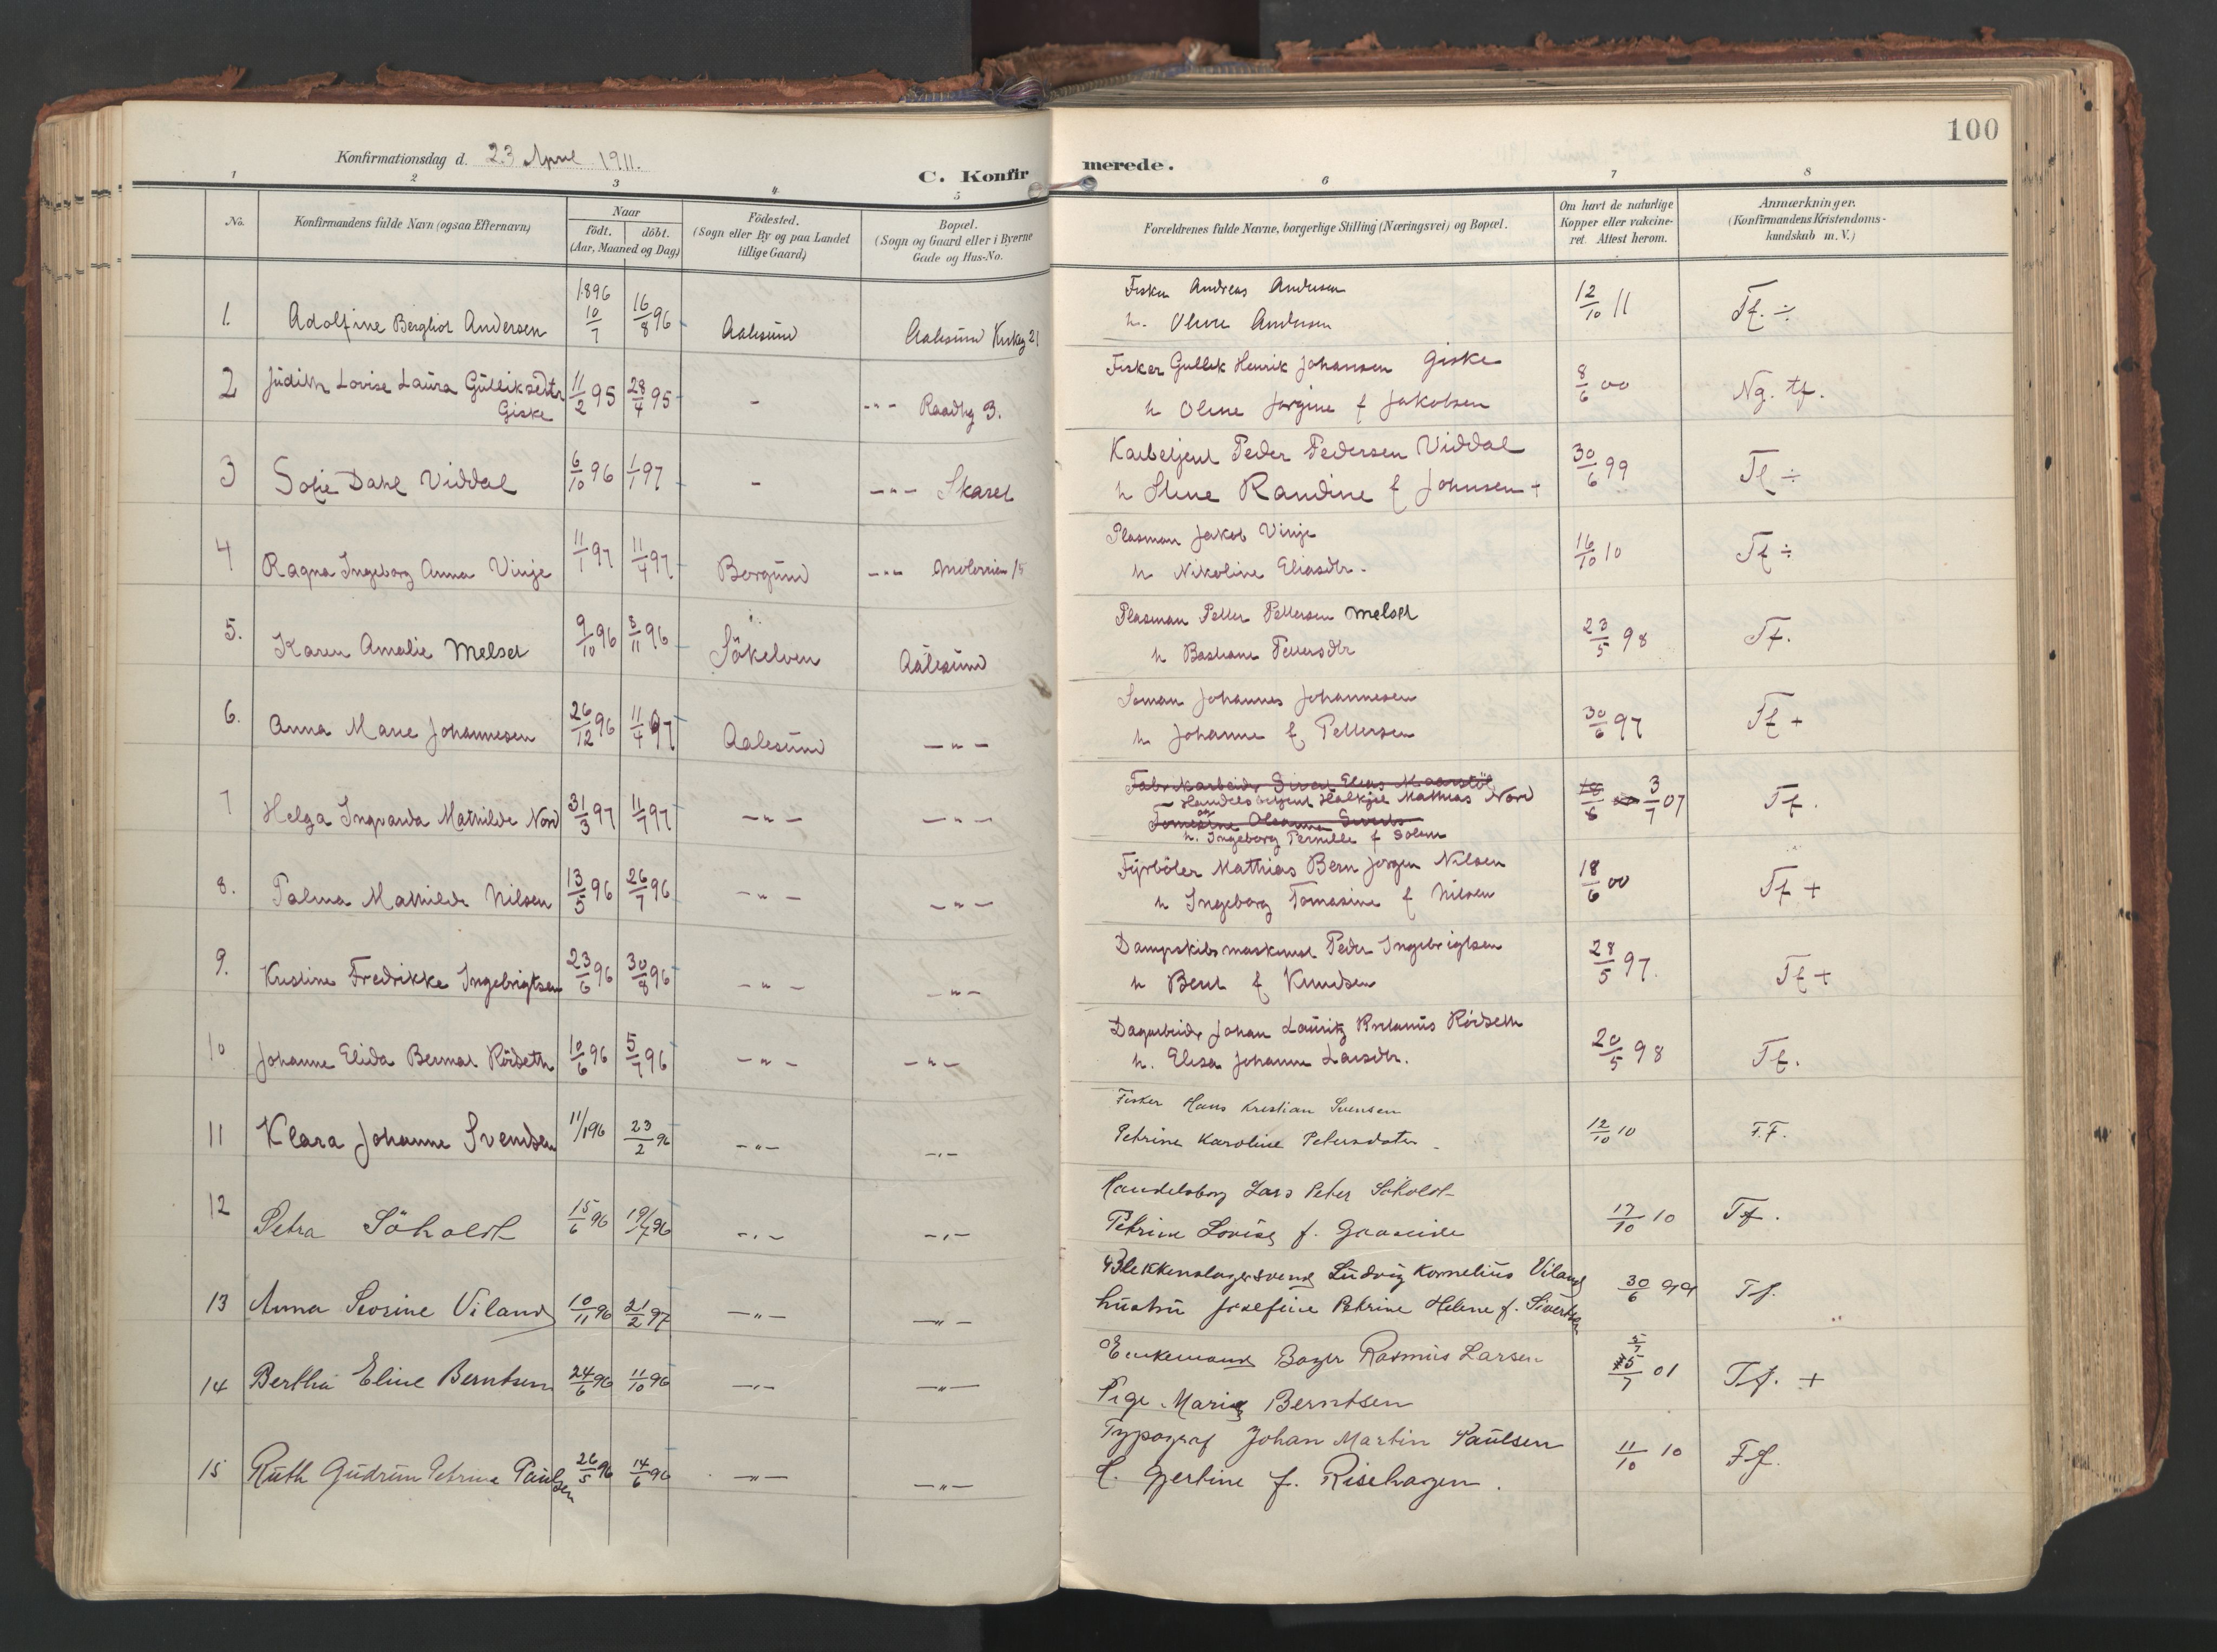 100
Konfirmationsdag d. 23 April 1911.
C. Konfirmerede.
1 2 3 4 5 6 7 8
No.
Konfirmandens fulde Navn (ogsaa Efternavn)
Naar
födt. döbt.
(Aar, Maaned og Dag)
Födested.
(Sogn eller By og paa Landet
tillige Gaard)
Bopæl.
(Sogn og Gaard eller i Byerne
Gade og Hus-No.
Forældrenes fulde Navne, borgerlige Stilling (Næringsvei) og Bopæl.
Om havt de naturlige
Kopper eller vakcine-
ret. Attest herom.
Anmærkninger.
(Konfirmandens Kristendoms-
kundskab m. V.)
1. Adolfine Bergliot Andersen 1896 10/7 16/8 96 Aalesund Aalesund Kirkeg 21
Fisker Andreas Andersen
h. Oline Andersen
12/10 11 Tf. ÷
2 Judith Lovise Laura Gulliksdtr
Giske
11/2 95 28/4 95 - -"- Raadhg 3.
Fisker Gullik Henrik Johansen Giske
h Oline Jørgine f Jakobsen
8/6 00 Ng. tf.
3 Sofie Dahl Viddal 6/10 96 1/1 97 - -"- Skaret
Peder Pedersen Viddal
h Stine Randine f Johnsen +
30/6 99 Tf ÷
4 Ragna Ingeborg Anna Vinje 11/1 97 11/4 97 Borgund -"- Moloveien 15
Plasman Jakob Vinje
h Nikoline Eliasdtr.
16/10 10 Tf ÷
5. Karen Amalie Melset 9/10 96 8/11 96 Sökelven Aalesund
Plasman Petter Pettersen Melset
h Bastiane Pettersdtr
23/5 98 Tf.
6. Anna Marie Johannesen 26/12 96 11/4 97 Aalesund -"-
Söman Johannes Johannesen
h Johanne f Pettersen
30/6 97 Tf +
7 Helga Ingvarda Mathilde Nord 31/3 97 11/7 97 -"- -"-
Fabrikarbeider Sivert Elias
Handelsbetjent Mathias Nord
Oleanna
h. Ingeborg Pernille f Solem
3/7 07 Tf.
8. Palma Mathilde Nilsen 13/5 96 26/7 96 -"- -"-
Fyrböter Mathias Bern Jørgen Nilsen
h Ingeborg Tomasine f Nilsen
18/6 00 Tf +
9. Kristine Fredrikke Ingebrigtsen 23/6 96 30/8 96 -"- -"-
Dampskibsmaskinist Peder Ingebrigtsen
h Berit f Knudsen
28/5 97. Tf +
10 Johanne Elida Bernat Rödseth 10/6 96 5/7 96 -"- -"-
Dagarbeider Johan Lauritz Rödseth
h. Elisa Johanne Larsdtr.
20/5 98 Tf.
11 Klara Johanne Svendsen 11/1 96 23/2 96 -"- -"-
Fisker Hans Kristian Svensen
Petrine Karoline Petersdater
12/10 10 F.F.
12 Petra Söholdt 15/6 96 19/7 96 -"- -"-
Handelsborg Lars Peter Söholdt
Petrine Lovise f. Gaaseide
17/10 10 Tf.
13 Anna Severine Viland 10/11 96 21/2 97 -"- -"-
Blekkenslagersvend Ludvig Kornelius Viland
hustru Josefine Petrine Helene f. Sivertsen
30/6 99 Tf.
14 Bertha Eline Berntsen 24/6 96 11/10 96 -"- -"-
Enkemand Bager Rasmus Larsen
Pige Marie Berntsen
5/7 01 Tf. +
15 Ruth Gudrun Petrina Paulsen 26/5 96 14/6 96 -"- -"-
Typograf Johan Martin Paulsen
h. Gjertine f. Risehagen.
11/10 10 Ff.